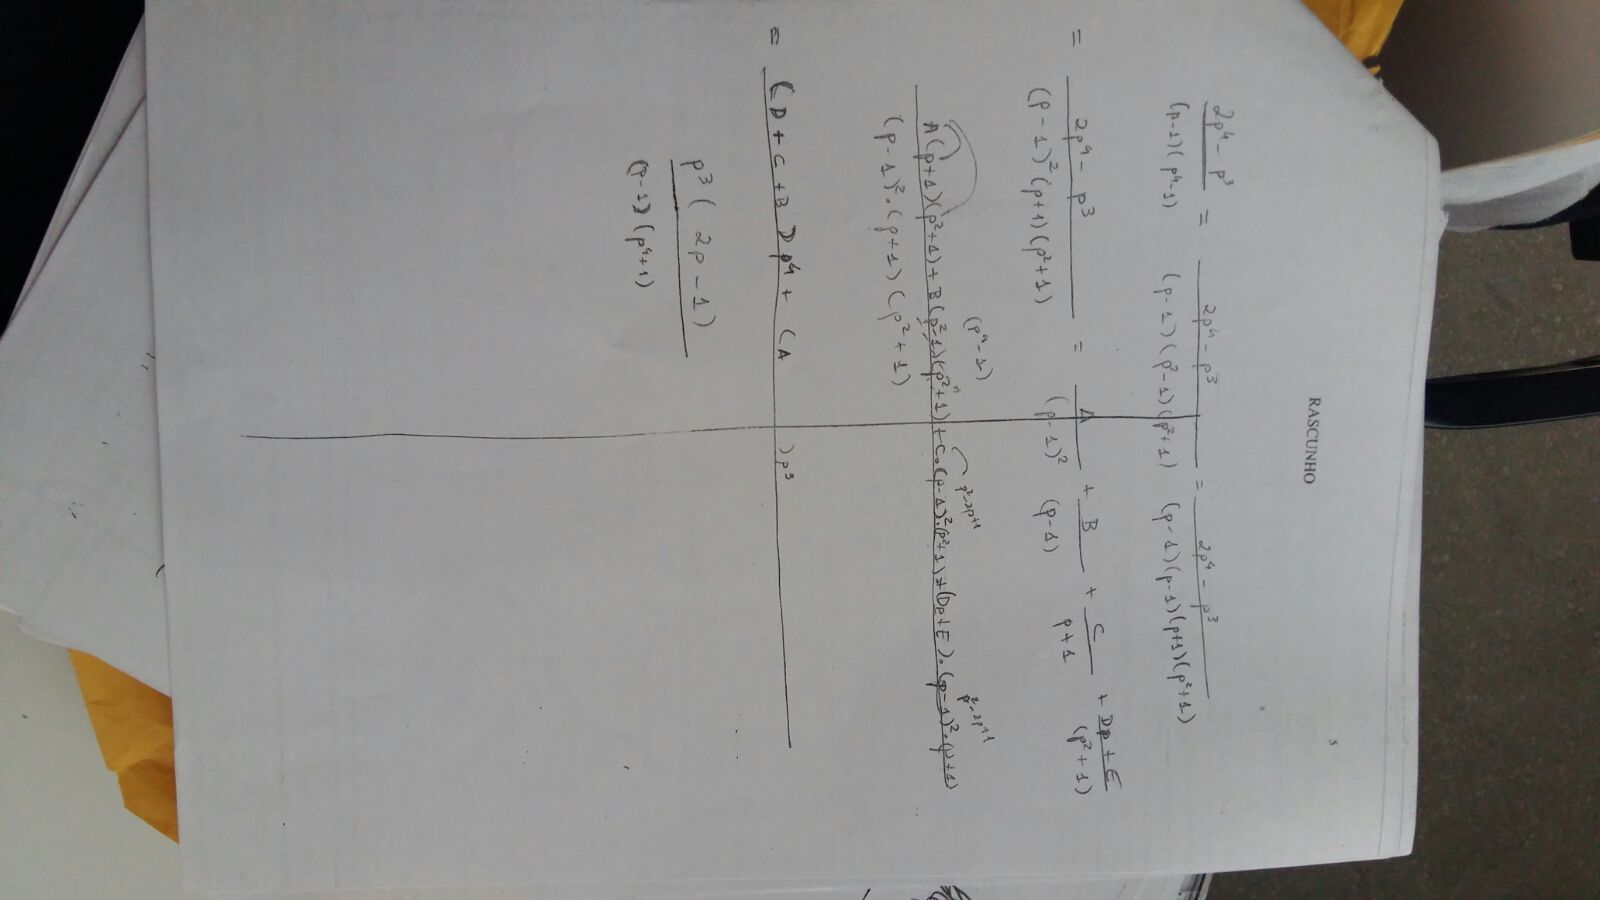 5
RASCUNHO
2p⁴ - p³ / (p-1)(p⁴-1) = 2p⁴ - p³ / (p-1)(p²-1)(p²+1) = 2p⁴ - p³ / (p-1)(p-1)(p+1)(p²+1)
= 2p⁴ - p³ / (p-1)²(p+1)(p²+1) = A / (p-1)² + B / (p-1) + C / p+1 + Dp+E / (p²+1)
(p⁴-1) p²-2p+1 p²-2p+1
A(p+1)(p²+1) + B(p²-1)(p²+1) + C.(p-1)².(p²+1) + (Dp+E).(p-1)².(p+1)
(p-1)².(p+1)(p²+1)
= (D + C + B D p⁴ + (A )p³
p³(2p-1)
(p-1)(p⁴+1)